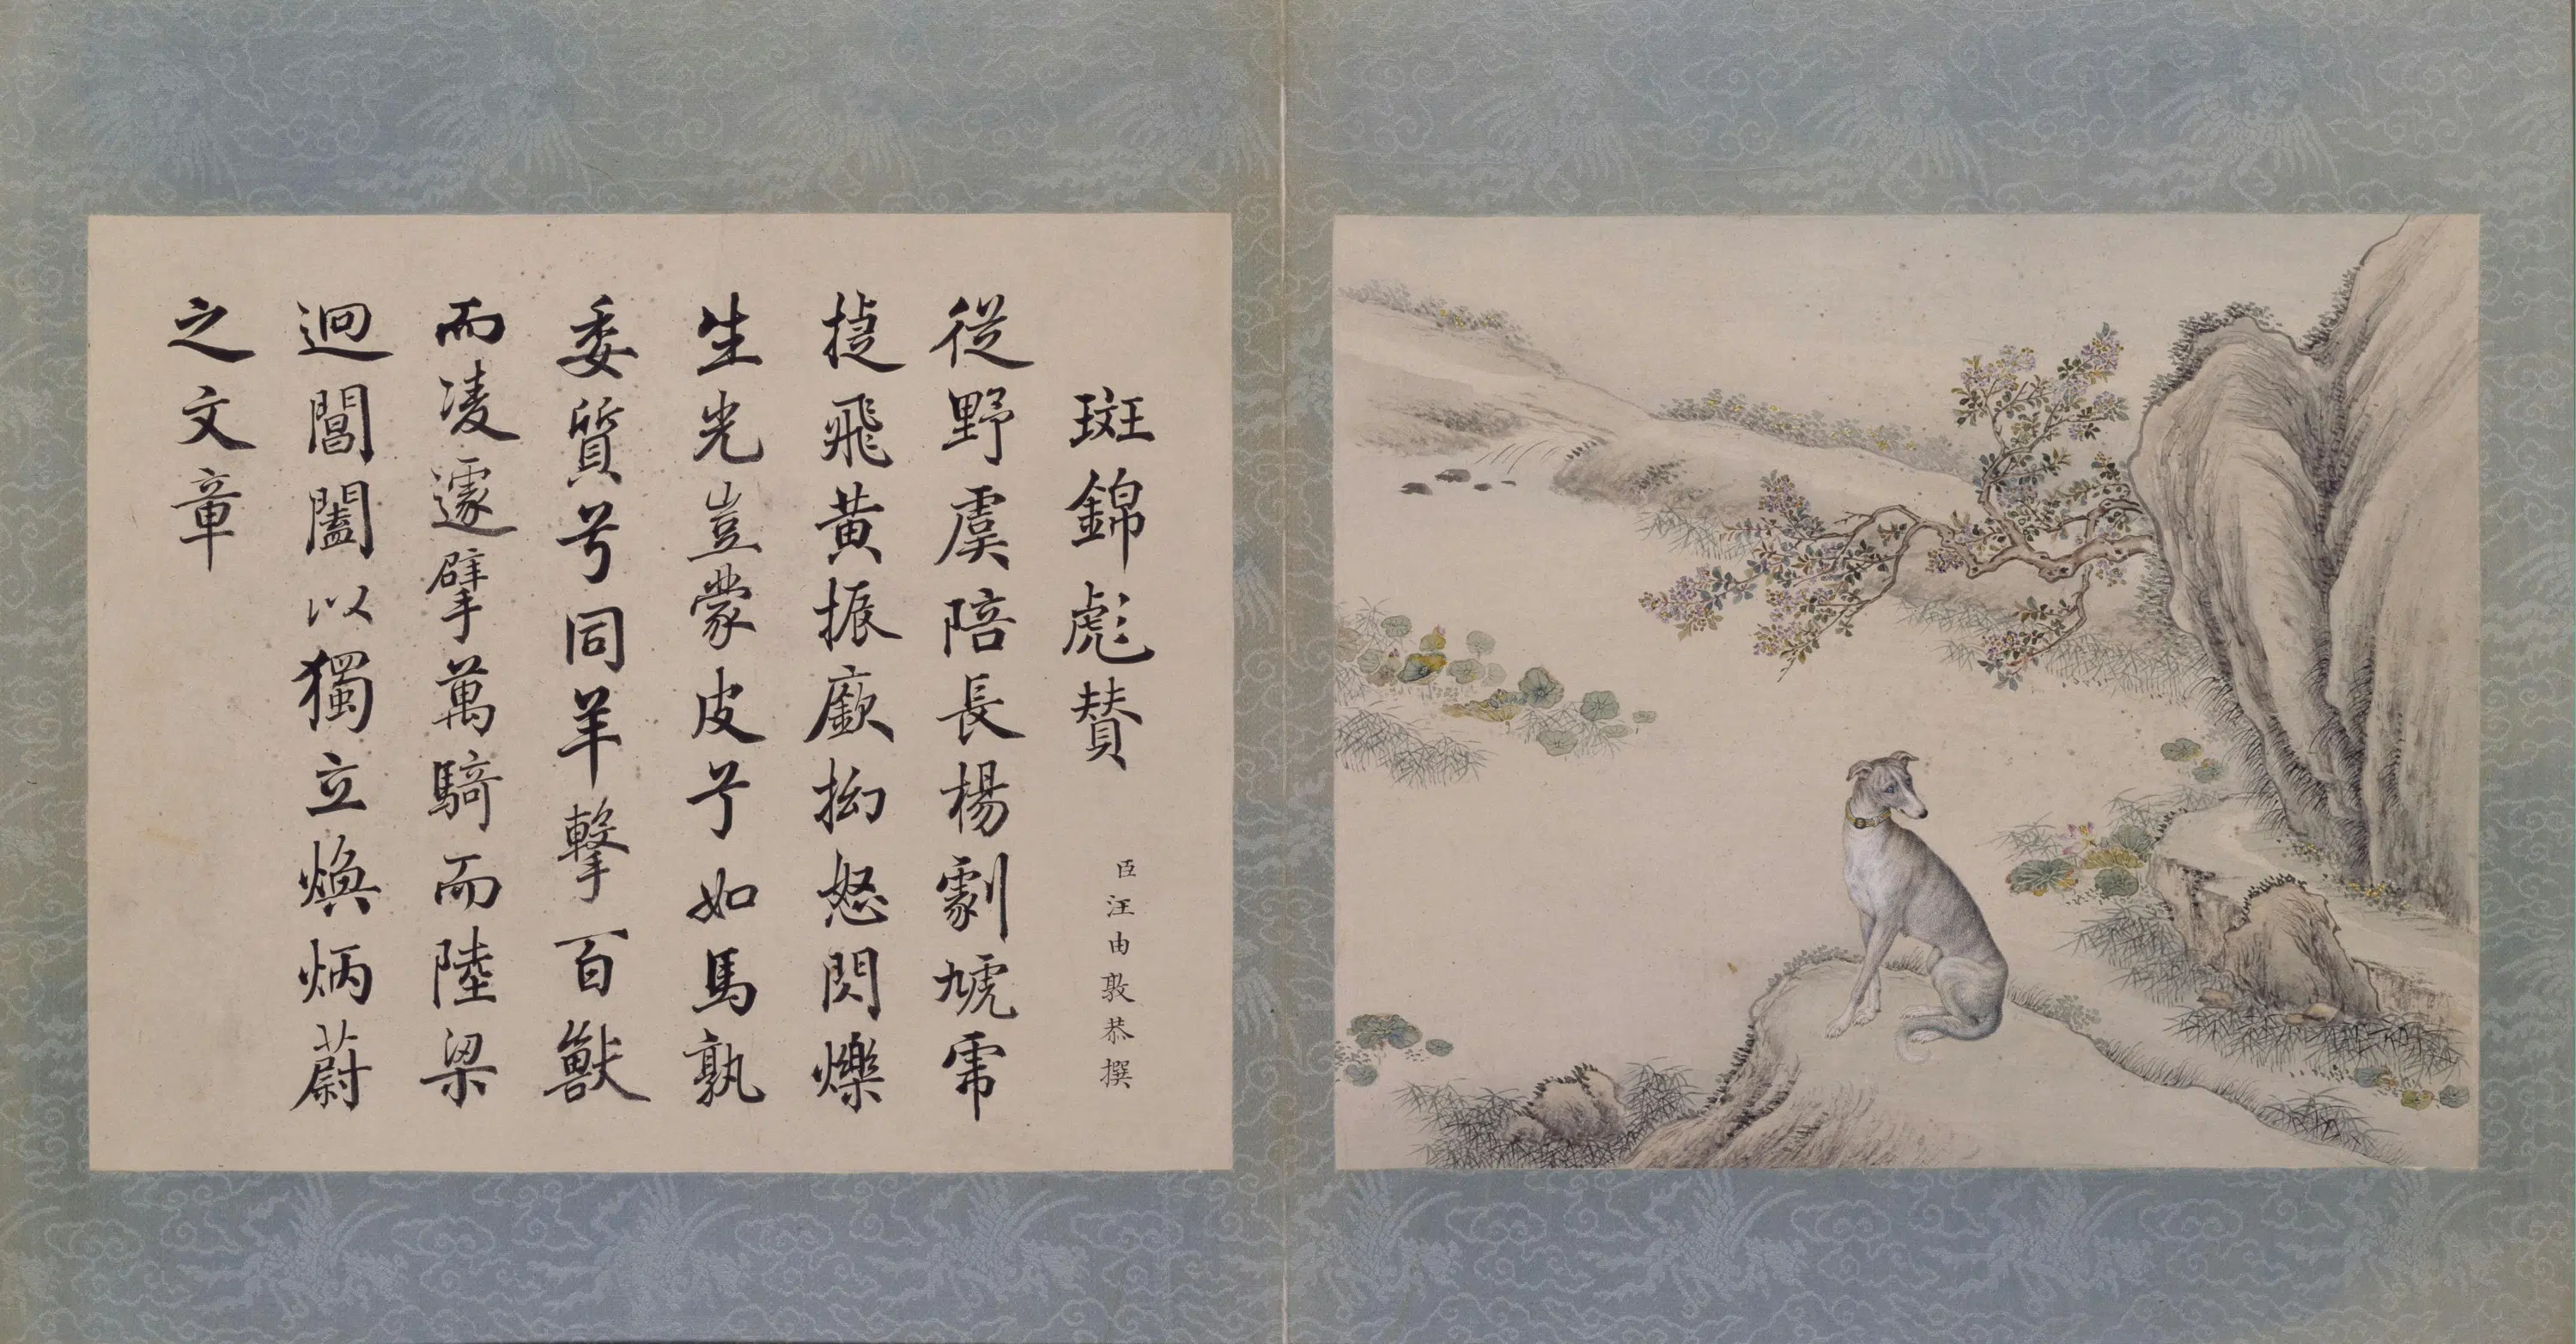 斑錦彪贊
臣汪由敦恭撰
從野虞陪長楊劇虓帍
捷飛黃振厥拗怒閃爍
生光豈蒙皮兮如馬孰
委質兮同羊擊百獸
而凌遽擘萬騎而陸梁
迴閶闔以獨立煥炳蔚
之文章